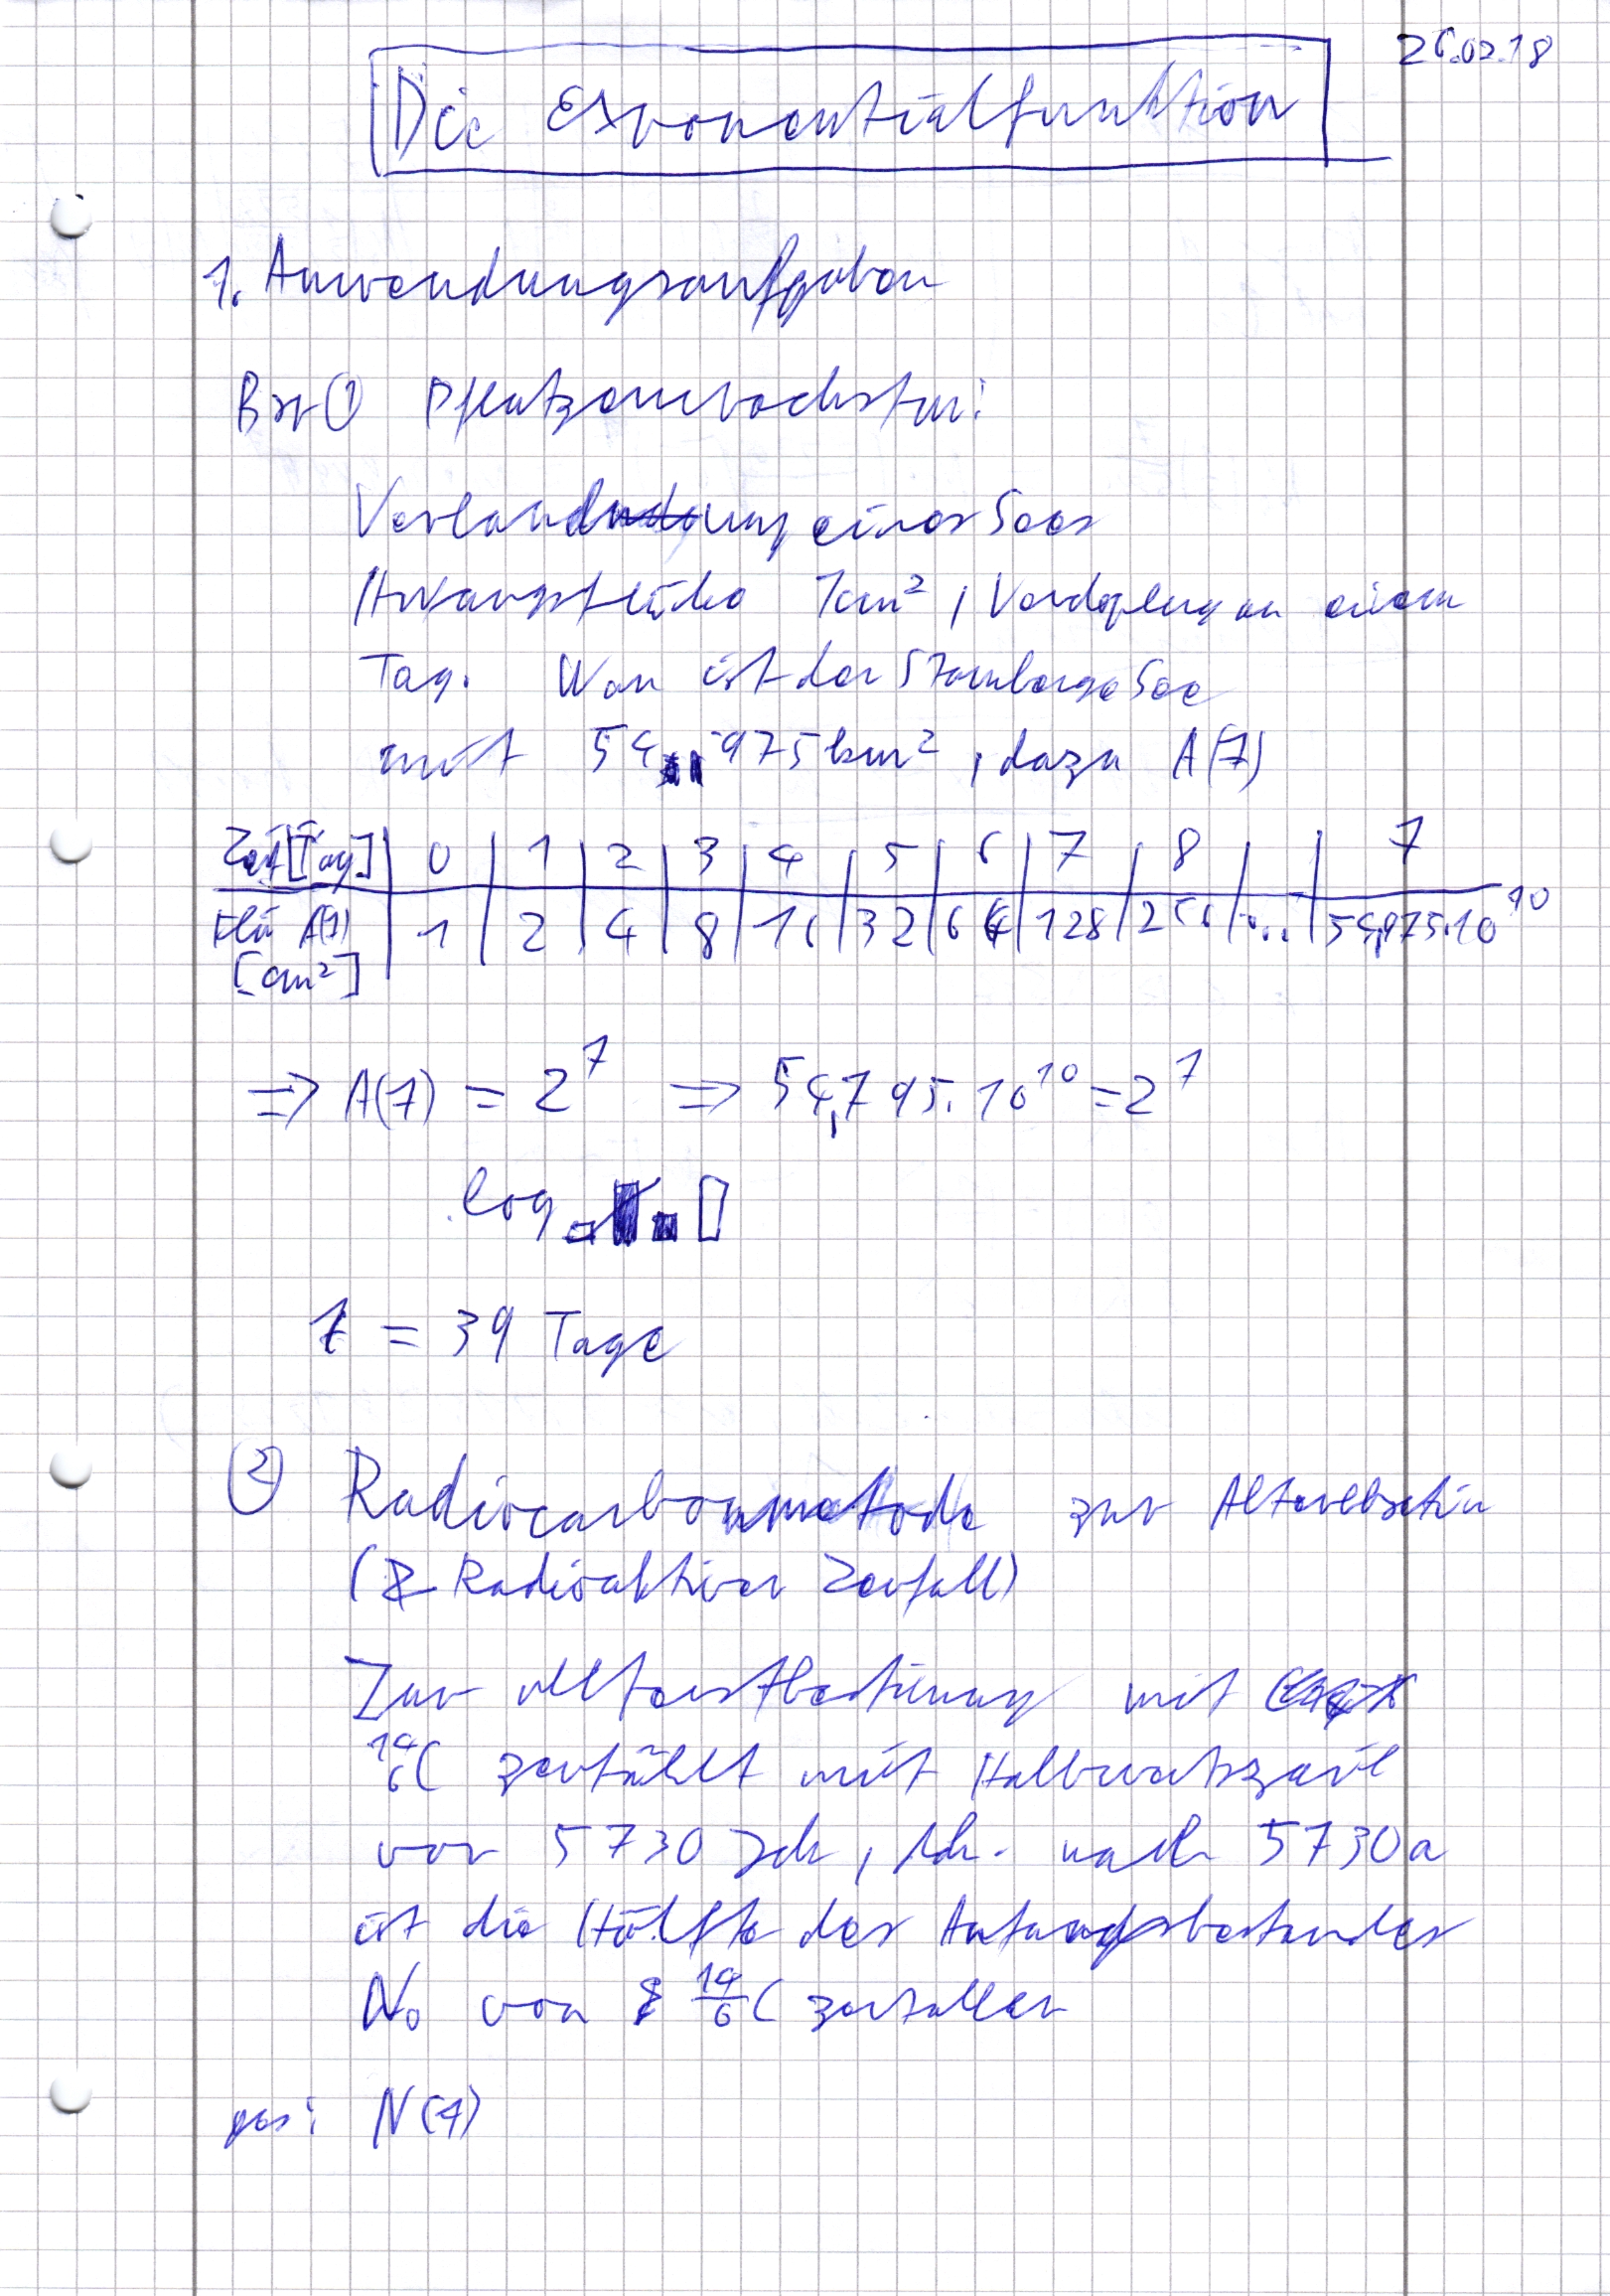 26.02.18
Die Exponentialfunktion
1. Anwendungsaufgaben
Bsp ① Pflanzenwachstum:
Verlandung eines Sees
Anfangsfläche 1cm², Verdoplung an einem
Tag. Wan ist der Starnberge See
mit 54,975 km², dazu A(t)
Zeit [Tag] 0 1 2 3 4 5 6 7 8 t
Flä A(t) 1 2 4 8 16 32 64 128 256 ... 54,975·10¹⁰
[cm²]
=> A(t) = 2^t => 54,795·10¹⁰ = 2^t
log
t = 39 Tage
② Radiocarbonmetode zur
(Radioaktiver Zerfall)
Zur mit
¹⁴₆C zerfällt mit
von 5730 , d.h. nach 5730a
ist die Hälfte des Anfangsbestandes
N₀ von ¹⁴₆C zerfallen
ges: N(t)